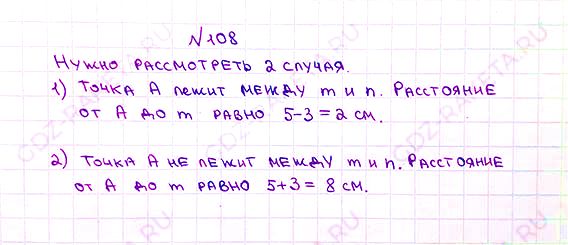 №108
Нужно рассмотреть 2 случая.
1) Точка A лежит между m и n. Расстояние
от A до m равно 5-3=2 см.
2) Точка A не лежит между m и n. Расстояние
от A до m равно 5+3= 8 см.
GDZ-RAKETA.RU